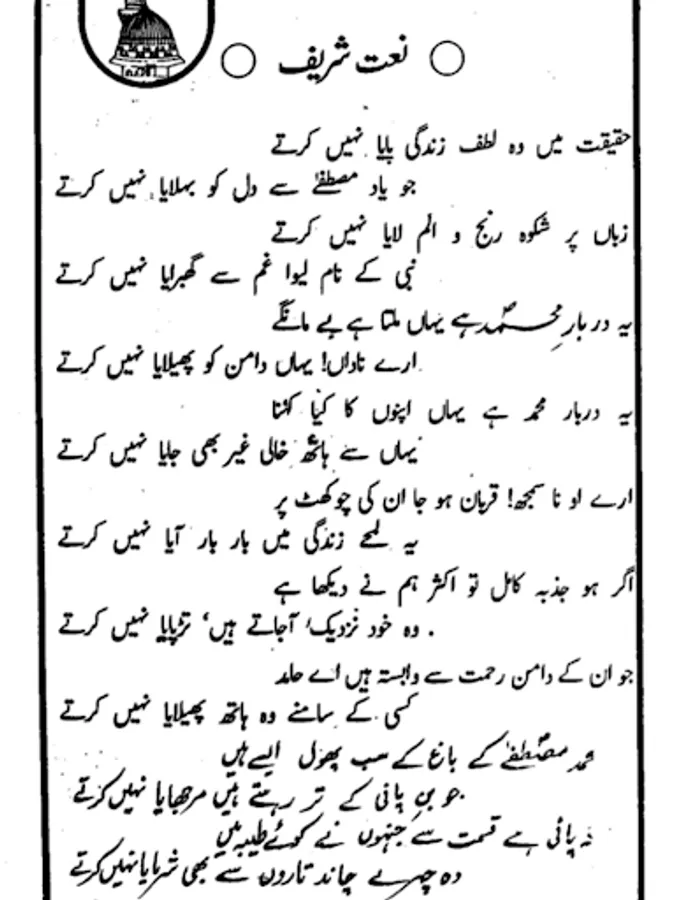 نعت شریف
حقیقت میں وہ لطف زندگی پایا نہیں کرتے
جو یاد مصطفےٰ سے دل کو بہلایا نہیں کرتے
زباں پر شکوہ رنج و الم لایا نہیں کرتے
نبی کے نام لیوا غم سے گھبرایا نہیں کرتے
یہ دربارِ محمدؐ ہے یہاں ملتا ہے بے مانگے
ارے ناداں! یہاں دامن کو پھیلایا نہیں کرتے
یہ دربار محمد ہے یہاں اپنوں کا کیا کہنا
یہاں سے ہاتھ خالی غیر بھی جایا نہیں کرتے
ارے او نا سمجھ! قربان ہو جا ان کی چوکھٹ پر
یہ لمحے زندگی میں بار بار آیا نہیں کرتے
اگر ہو جذبہ کامل تو اکثر ہم نے دیکھا ہے
وہ خود نزدیک آجاتے ہیں، تڑپایا نہیں کرتے
جو ان کے دامن رحمت سے وابستہ ہیں اے حامد
کسی کے سامنے وہ ہاتھ پھیلایا نہیں کرتے
محمد مصطفےٰؐ کے باغ کے سب پھول ایسے ہیں
جو بن پانی کے تر رہتے ہیں مرجھایا نہیں کرتے
پائی ہے قسمت سے جنہوں نے کوئے طیبہ میں
وہ چہرے چاند تاروں سے بھی شرمایا نہیں کرتے